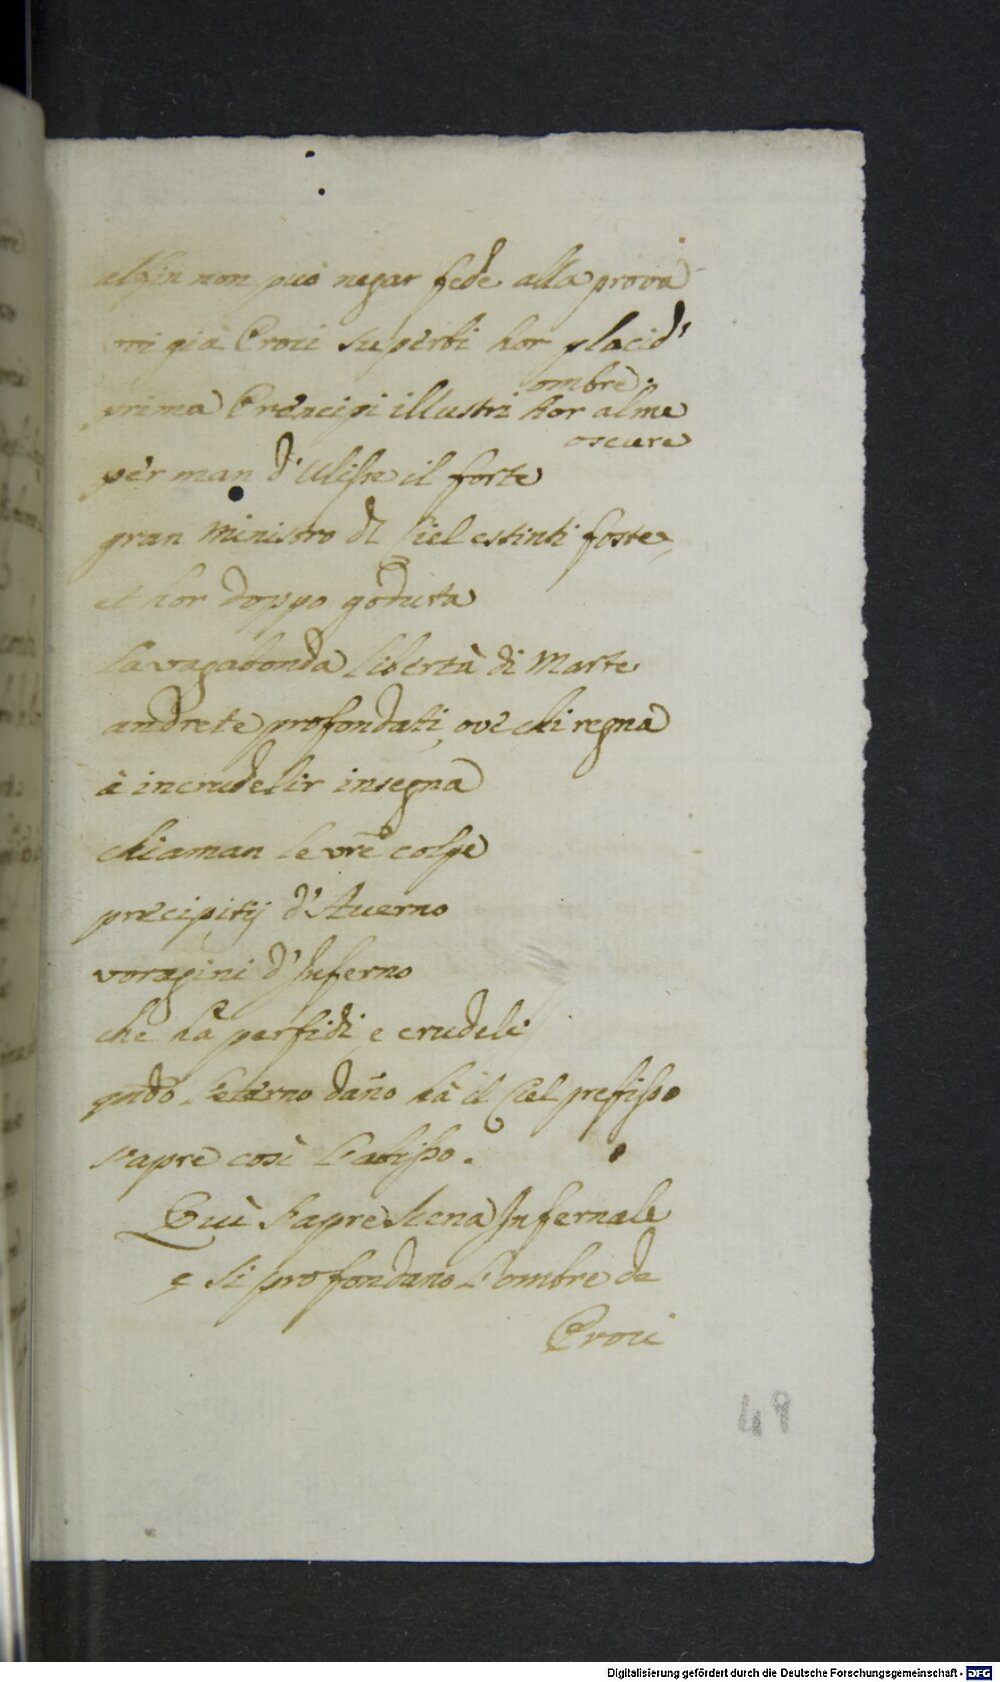 alfin non può negar fede alla prova
voi già Proci superbi hor placid'
ombre.
prima Prencipi illustri hor alme
oscure
per man d'Ulisse il forte
gran Ministro dl Ciel estinti foste,
et hor doppo goduta
la vagabonda libertà di Marte
andrete profondati, ove chi regna
à incrudelir insegna
chiaman le vrẽ colpe
precipitij d'Averno
voragini d'Inferno
che hà perfidi, e crudeli
qñdo l'eterno dañno hà il Ciel prefisso
s'apre così l'abisso.
Quì s'apre Scena Infernale
e si profondano l'ombre de
Proci
48
Digitalisierung gefördert durch die Deutsche Forschungsgemeinschaft - DFG